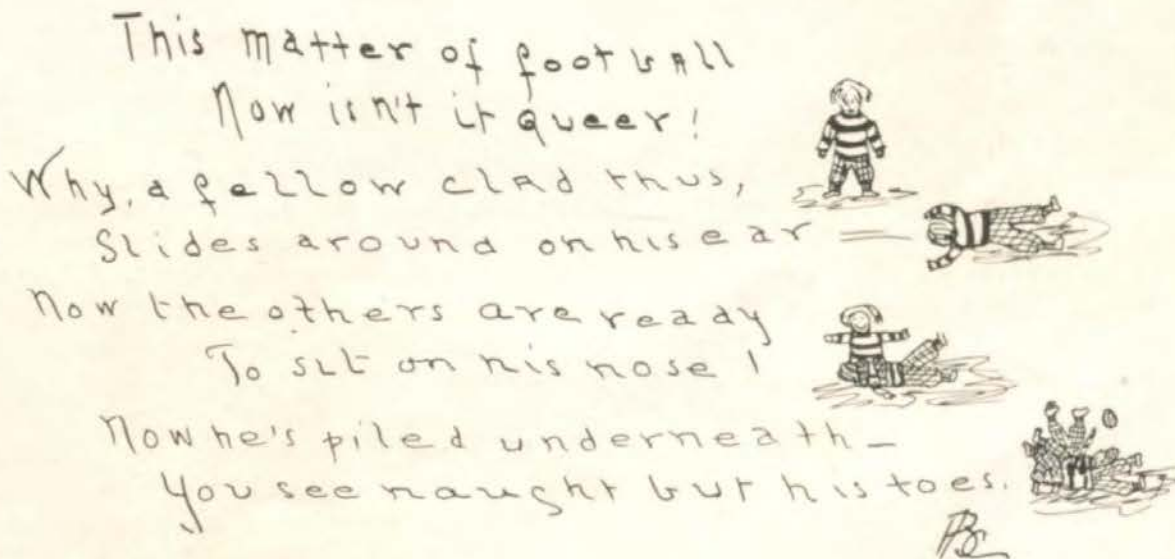 This matter of football
Now isn't it queer!
Why, a fellow clad thus,
Slides around on his ear
Now the others are ready
To sit on his nose!
Now he's piled underneath—
You see naught but his toes.